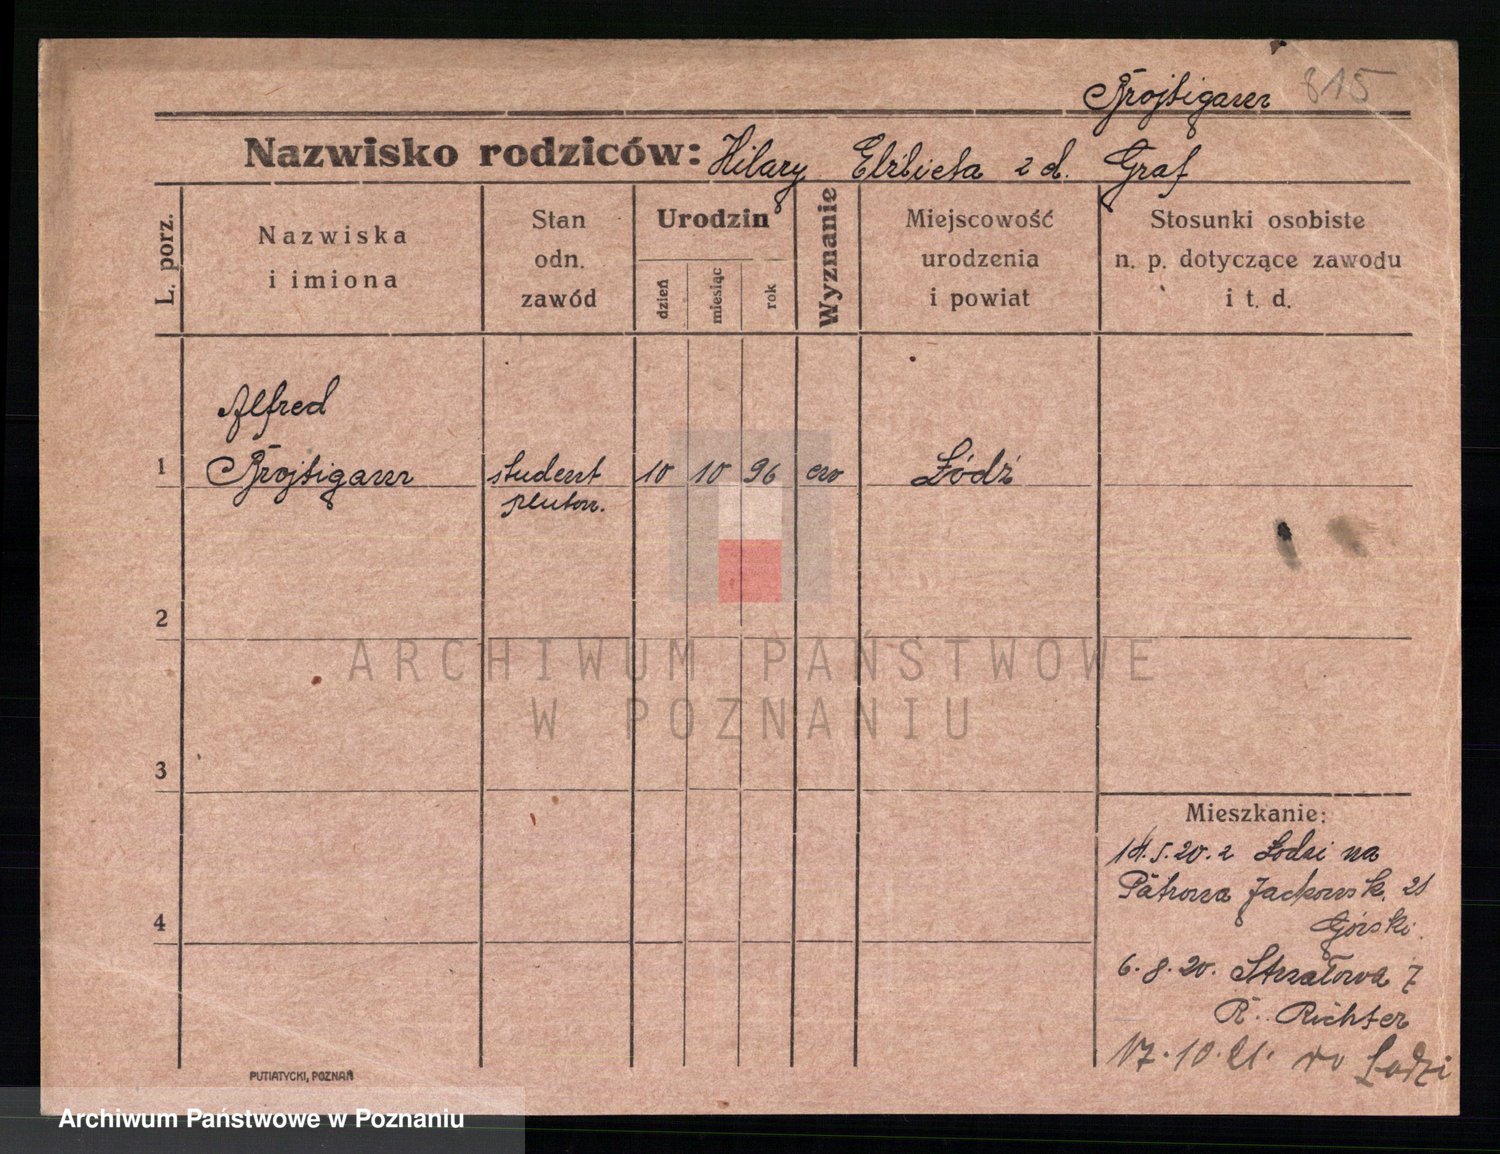 815
Nazwisko rodziców: Hilary Elżbieta z d. Graf
L. porz.
Nazwiska
i imiona
Stan
odn.
zawód
Urodzin
dzień
miesiąc
rok
Wyznanie
Miejscowość
urodzenia
i powiat
Stosunki osobiste
n. p. dotyczące zawodu
i t. d.
Alfred
1 student 10 10 96 ew Łódź
pluton.
2
ARCHIWUM PAŃSTWOWE
W POZNANIU
3
Mieszkanie:
14.5.20. z Łodzi na
Jackowsk. 21
4
Górski.
6.8.20. Strzałowa 7
R. Richter
17.10.21. do Łodzi
PUTIATYCKI, POZNAŃ
Archiwum Państwowe w Poznaniu